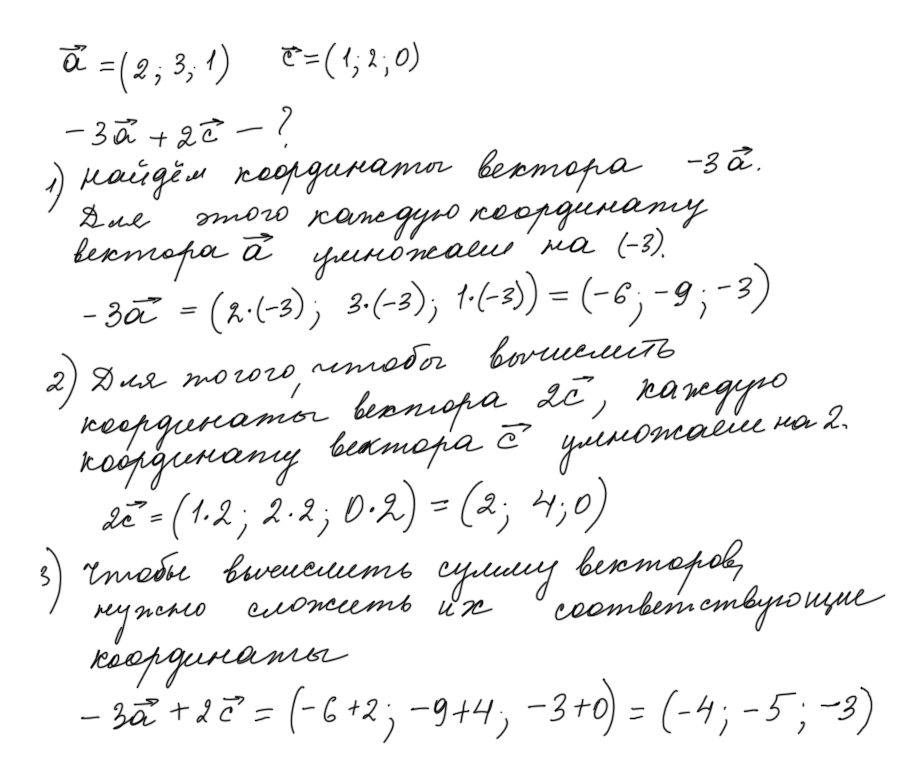 a⃗ = (2; 3; 1) c⃗ = (1; 2; 0)
-3a⃗ + 2c⃗ - ?
1) Найдём координаты вектора -3a⃗.
Для этого каждую координату
вектора a⃗ умножаем на (-3).
-3a⃗ = (2·(-3); 3·(-3); 1·(-3)) = (-6; -9; -3)
2) Для тогого, чтобы вычислить
координаты вектора 2c⃗, каждую
координату вектора c⃗ умножаем на 2.
2c⃗ = (1·2; 2·2; 0·2) = (2; 4; 0)
3) Чтобы вычислить сумму векторов,
нужно сложить их соответствующие
координаты
-3a⃗ + 2c⃗ = (-6+2; -9+4; -3+0) = (-4; -5; -3)